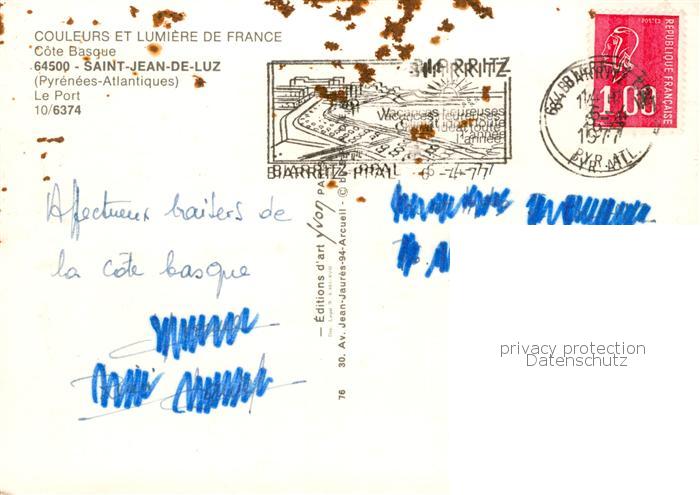 COULEURS ET LUMIÈRE DE FRANCE
Côte Basque
64500 - SAINT-JEAN-DE-LUZ
(Pyrénées-Atlantiques)
Le Port
10/6374
BIARRITZ
Vacances heureuses
Climat idéal toute
l'année
BIARRITZ PPAL
-4-77
BIARRITZ
1977
PYR. ATL.
POSTES
REPUBLIQUE FRANÇAISE
1.00
Affectueux baisers de
la côte basque
— Éditions d'art yvon
30. Av. Jean-Jaurès-94-Arcueil - ©
76
privacy protection
Datenschutz